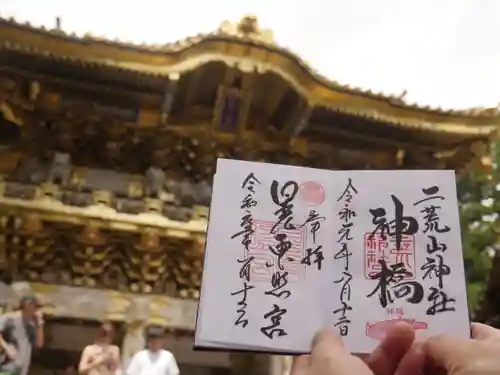 二荒山神社
神橋
令和元年六月十二日
奉拝
日光東照宮
令和元年六月十二日